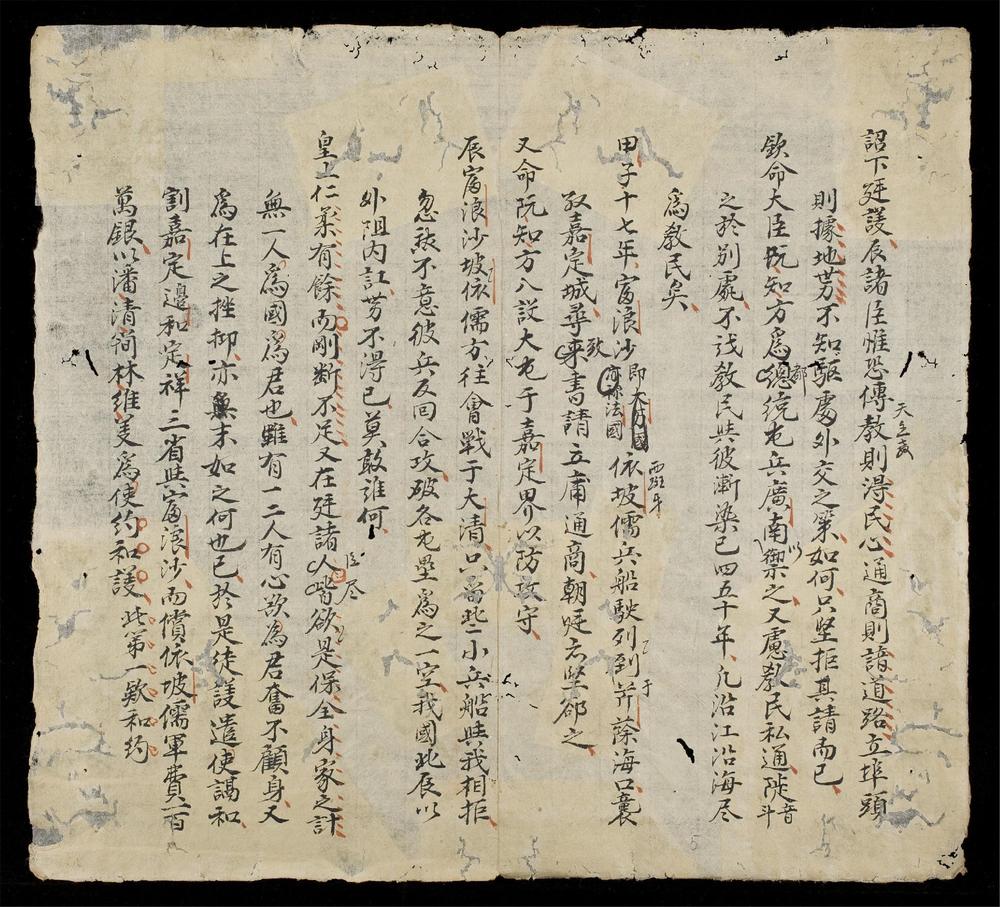 詔下廷議辰諸臣惟恐傳教則淂民心通商則諳道路立埠頭
天主教
則據地勢不知駆處外交之策如何只堅拒其請而已
欽命大臣阮知方爲總統屯兵廣南以禦之又慮教民私通陡音斗
之於別處不戝教民與彼漸染已四五十年凢沿江沿海尽
爲教民矣
甲子十七年富浪沙即亦称法國依坡儒兵船駛列到芹蒢海口襲
西班牙
于
取嘉定城尋致来書請立庸通商朝廷亦堅郤之
又命阮知方八設大屯于嘉定界以防攻守
辰富浪沙坡依儒方往會戰于大清只畱些小兵船與我相拒
忽然不意彼兵反回合攻破各屯壘爲之一空我國此辰以
外阻内訌勢不得已莫敢誰何
皇上仁柔有餘而剛断不足又在廷諸臣人皆尽欲是保全身家之計
無一人爲國爲君也雖有一二人有心欲為君奮不顧身又
爲在上之挫抑亦無末如之何也已於是徒議遣使謁和
割嘉定邊和定祥三省與富浪沙而償依坡儒軍費一百
萬銀以潘清簡林維㕠爲使約和議此第一欵和約